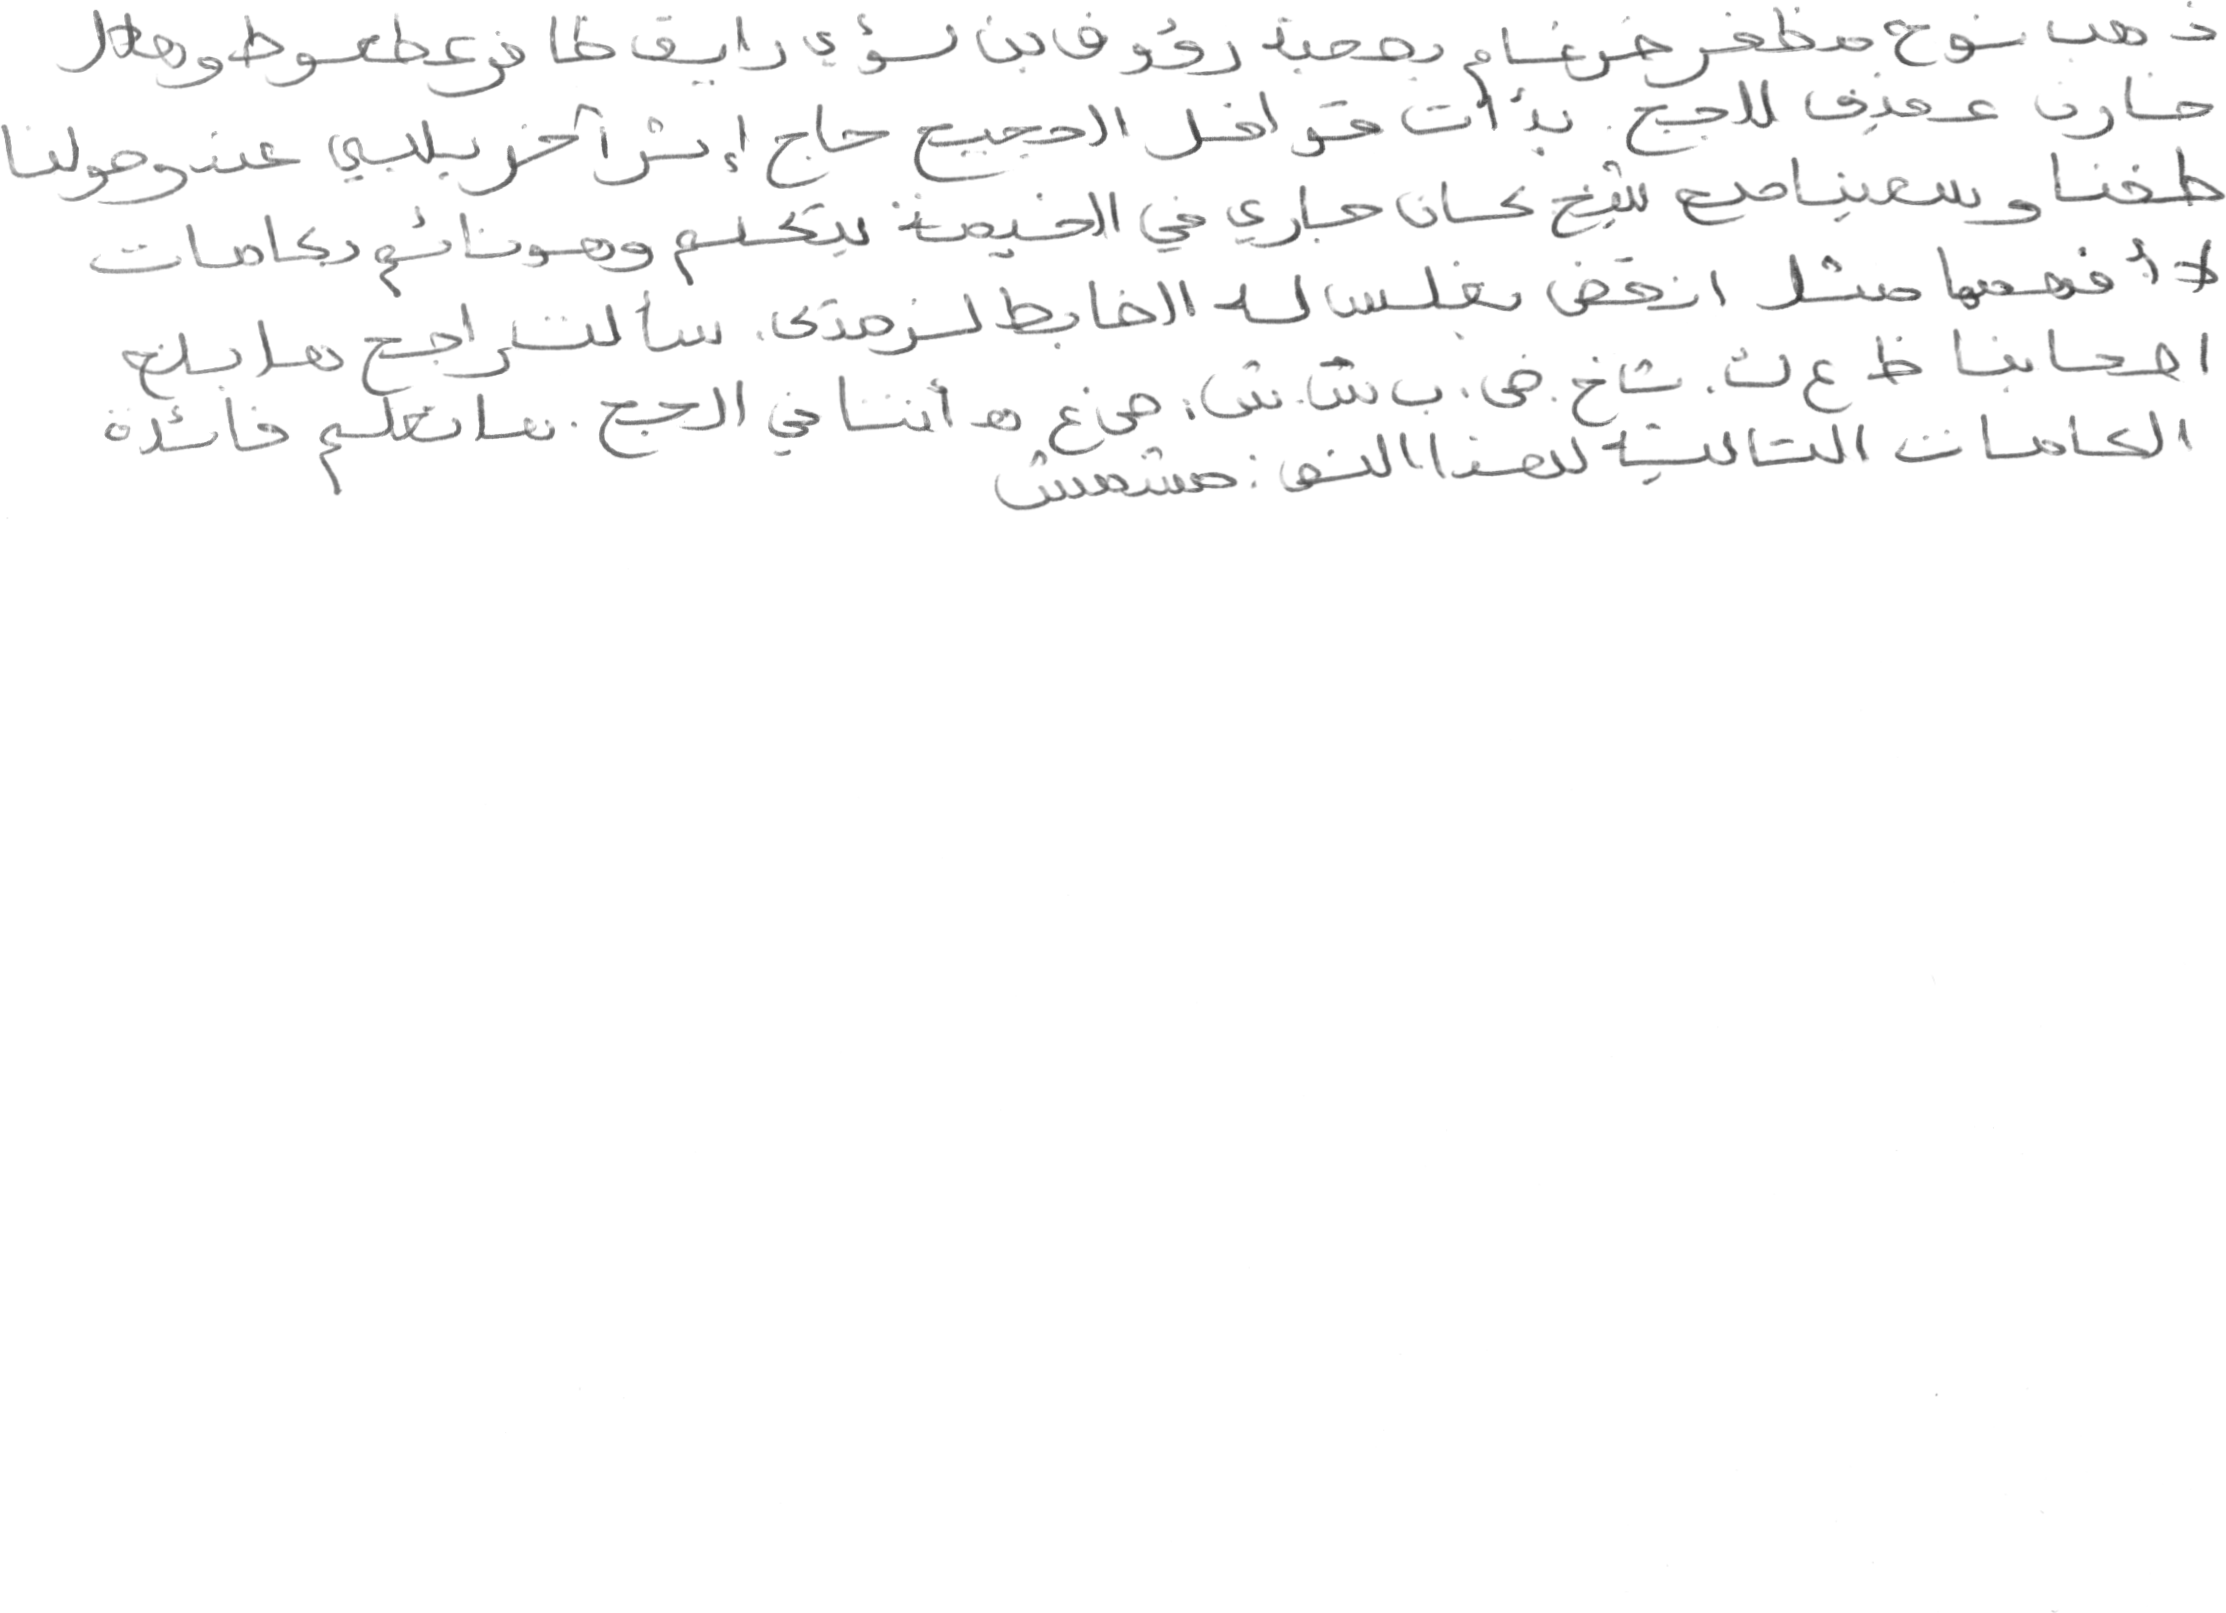 ذهب نوح مظفر ضرغام بصحبة رؤوف بن لؤي رايق ظافر عطعوط وهلال
حارث عفيف للحج. بدأت قوافل الحجيج حاج إثر آخر يلبي عند وصولنا
طفنا وسعينا مع شيخ كان جاري في الخيمة يتكلم وهو نائم بكلمات
لا أفهمها مثل انقض بغلس له الضابط لزمتى. سألت راجح هل بلغ
اصحابنا ظ ع ث. شاخ. ض. ب ش. ش. ص غ هـ أننا في الحج. هل تعلم فائدة
الكلمات التالية لهذا النص: مشمش